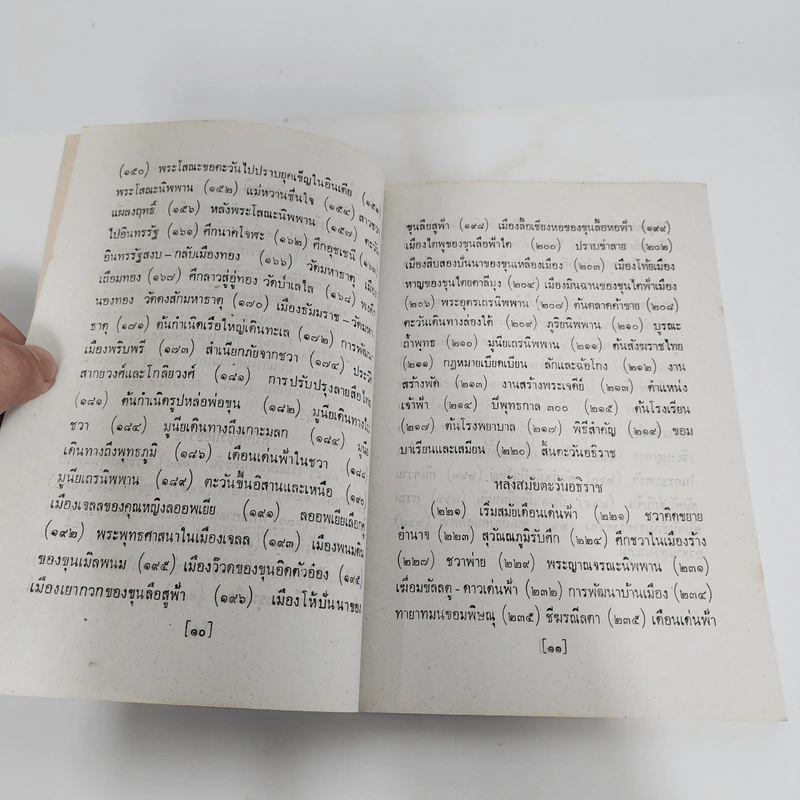 (๑๕๐) พระโสณะขอตะวันไปปราบยุคเข็ญในอินเดีย (๑๕๑)
พระโสณะนิพพาน (๑๕๒) แม่หวานชื่นใจ (๑๕๔) สาวชวา
แผลงฤทธิ์ (๑๕๖) หลังพระโสณะนิพพาน (๑๕๗)
ไปอินทรรัฐ (๑๖๑) ศึกนาคโจพะ (๑๖๒) ศึกอุชเชนี
อินทรรัฐสงบ – กลับเมืองทอง (๑๖๖) วัดมหาธาตุ
เถือมทอง (๑๖๗) ศึกลาวสู่อู่ทอง วัดป่าเลไล (๑๖๘)
นองทอง วัดดงสักมหาธาตุ (๑๗๐) เมืองธัมมราช – วัดมหา
ธาตุ (๑๗๑) ต้นกำเนิดเรือใหญ่เดินทะเล (๑๗๒) การพัฒนา
เมืองพริบพรี (๑๗๓) สำเนียกภัยจากชวา (๑๗๔)
สากยวงศ์และโกลิยวงศ์ (๑๘๑) การปรับปรุงลายสือไทย
(๑๘๑) ต้นกำเนิดรูปหล่อพ่อขุน (๑๘๒) มูนียเดินทางไป
ชวา (๑๘๔) มูนียเดินทางถึงเกาะมลก (๑๘๔) มูนีย
เดินทางถึงพุทธภูมิ (๑๘๖) เดือนเด่นฟ้าในชวา (๑๘๘)
มูนียเถรนิพพาน (๑๘๙) ตะวันขึ้นอิสานและเหนือ (๑๙๐)
เมืองเจลลของคุณหญิงลออพเยีย (๑๙๑) ลออพเยียเลือกคู่
(๑๙๒) พระพุทธศาสนาในเมืองเจลล (๑๙๓) เมืองพนมดิน
ของขุนเมิลพนม (๑๙๕) เมืองว๊วดของขุนอิดตัวอ๋อง (๑๙๕)
เมืองเยากวกของขุนลือสูฟ้า (๑๙๖) เมืองโห้ปั่นนาของ
[๑๐]
ขุนลือสู่ฟ้า (๑๙๘) เมืองลื้อเชียงหอของขุนลื้อหอฟ้า (๑๙๙)
เมืองไตพูของขุนลือฟ้าไต (๒๐๐) ปราบข่าลาย (๒๐๒)
เมืองสิบสองปันนาของขุนเหลืองเมือง (๒๐๓) เมืองโท้ยเมือง
หาญของขุนไทยดาลีมุง (๒๐๔) เมืองมินฉานของขุนไตฟ้าเมือง
(๒๐๖) พระอุตรเถรนิพพาน (๒๐๗) ต้นตลาดค้าขาย (๒๐๘)
ตะวันเดินทางล่องใต้ (๒๐๙) ภูริยนิพพาน (๒๑๐) บูรณะ
ถ้ำพุทธ (๒๑๐) มูนียเถรนิพพาน (๒๑๑) ต้นสังฆราชไทย
(๒๑๑) กฎหมายเบียดเบียน ลักและฉ้อโกง (๒๑๒) งาน
สร้างพัด (๒๑๓) งานสร้างพระเจดีย์ (๒๑๓) ตำแหน่ง
เจ้าฟ้า (๒๑๔) ปีพุทธกาล ๓๐๐ (๒๑๕) ต้นโรงเรียน
(๒๑๗) ต้นโรงพยาบาล (๒๑๗) พิธีสำคัญ (๒๑๙) ขอม
บาเรียนและเสมียน (๒๒๐) สิ้นตะวันอธิราช
หลังสมัยตะวันอธิราช
(๒๒๑) เริ่มสมัยเดือนเด่นฟ้า (๒๒๑) ชวาคิดขยาย
อำนาจ (๒๒๓) สุวัณณภูมิรับศึก (๒๒๔) ศึกชวาในเมืองร้าง
(๒๒๗) ชวาพ่าย (๒๒๙) พระญาณจรณะนิพพาน (๒๓๑)
เฆื่อมขัลลตู - ดาวเด่นฟ้า (๒๓๒) การพัฒนาบ้านเมือง (๒๓๔)
ทายาทมนขอมพิษณุ (๒๓๕) ชีฆรณีลตา (๒๓๕) เดือนเด่นฟ้า
[๑๑]